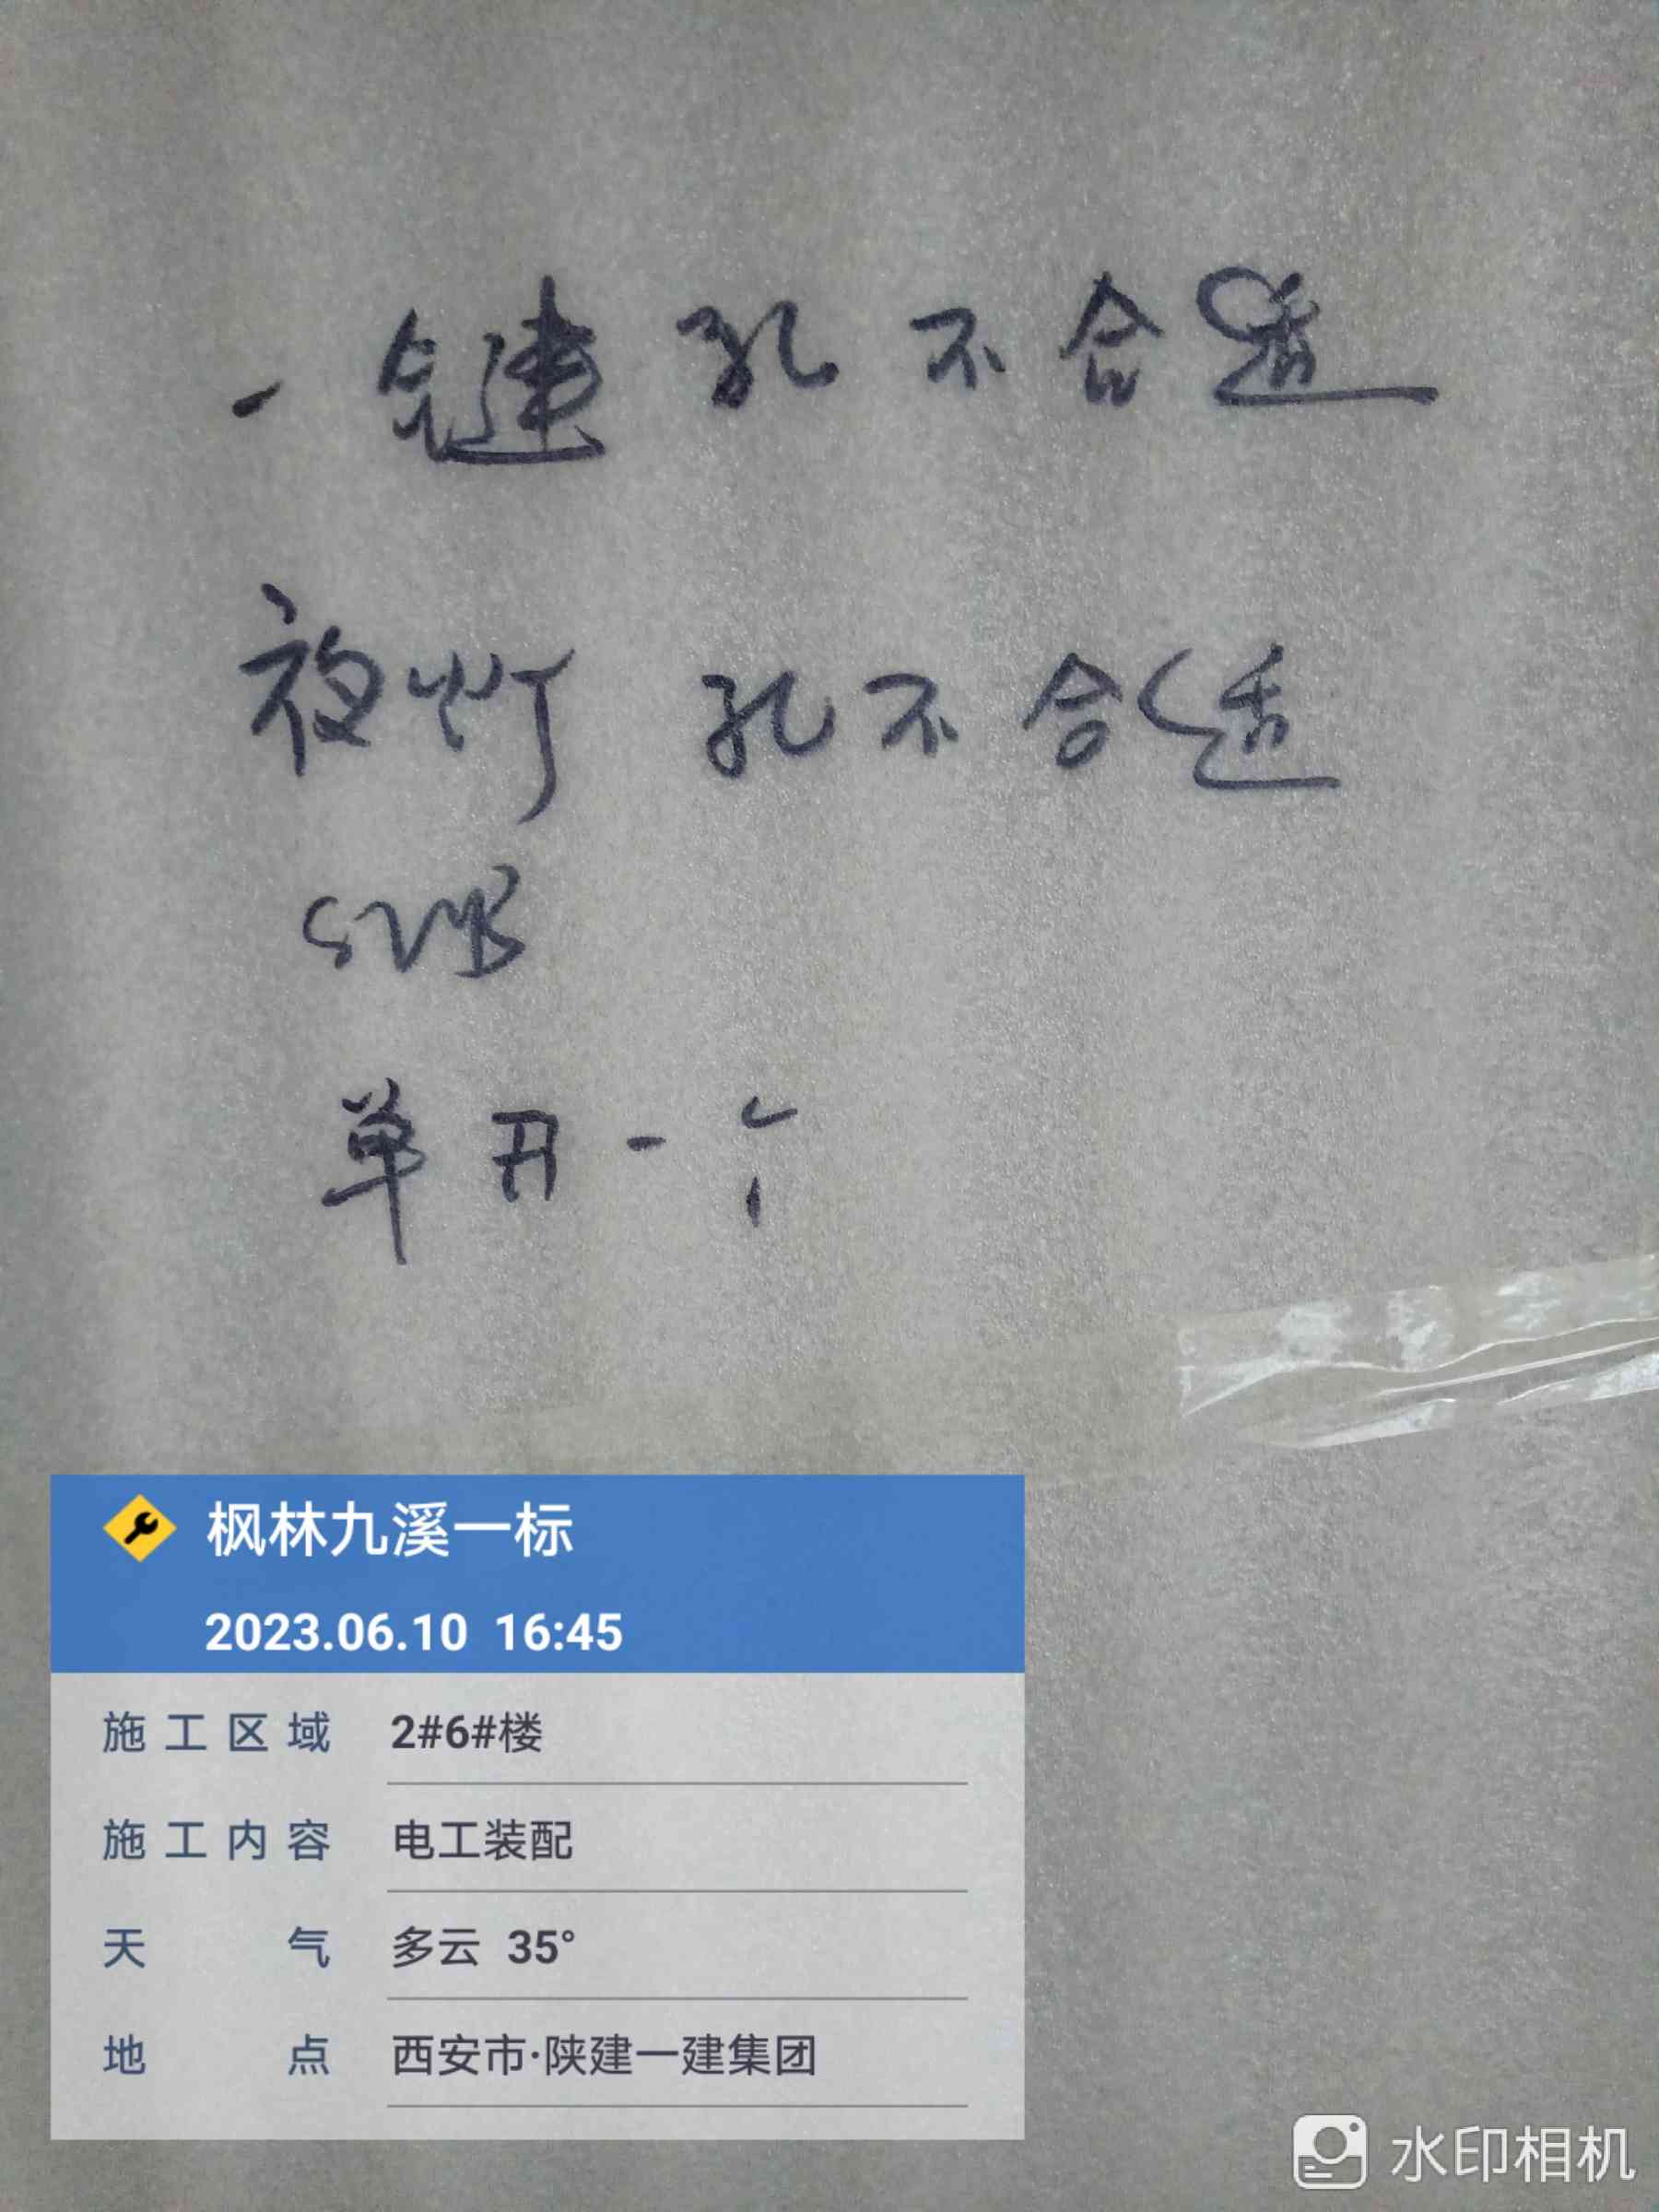 一键孔不合适
夜灯 孔不合适
单开一个
枫林九溪一标
2023.06.10 16:45
施工区域 2#6#楼
施工内容 电工装配
天气 多云 35°
地点 西安市·陕建一建集团
水印相机